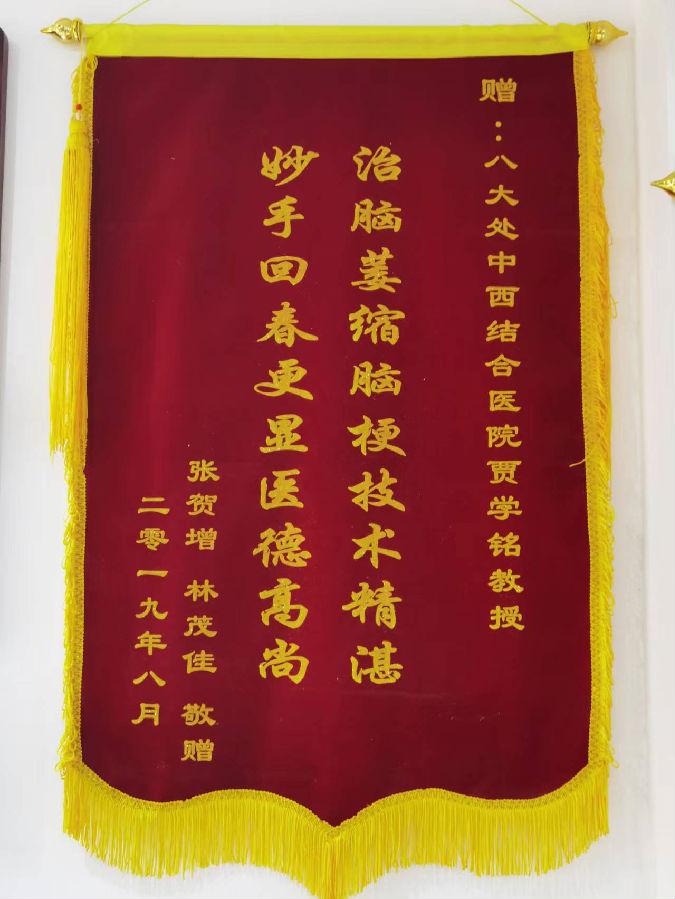 赠：八大处中西结合医院贾学铭教授
治脑萎缩脑梗技术精湛
妙手回春更显医德高尚
张贺增 林茂佳 敬赠
二零一九年八月